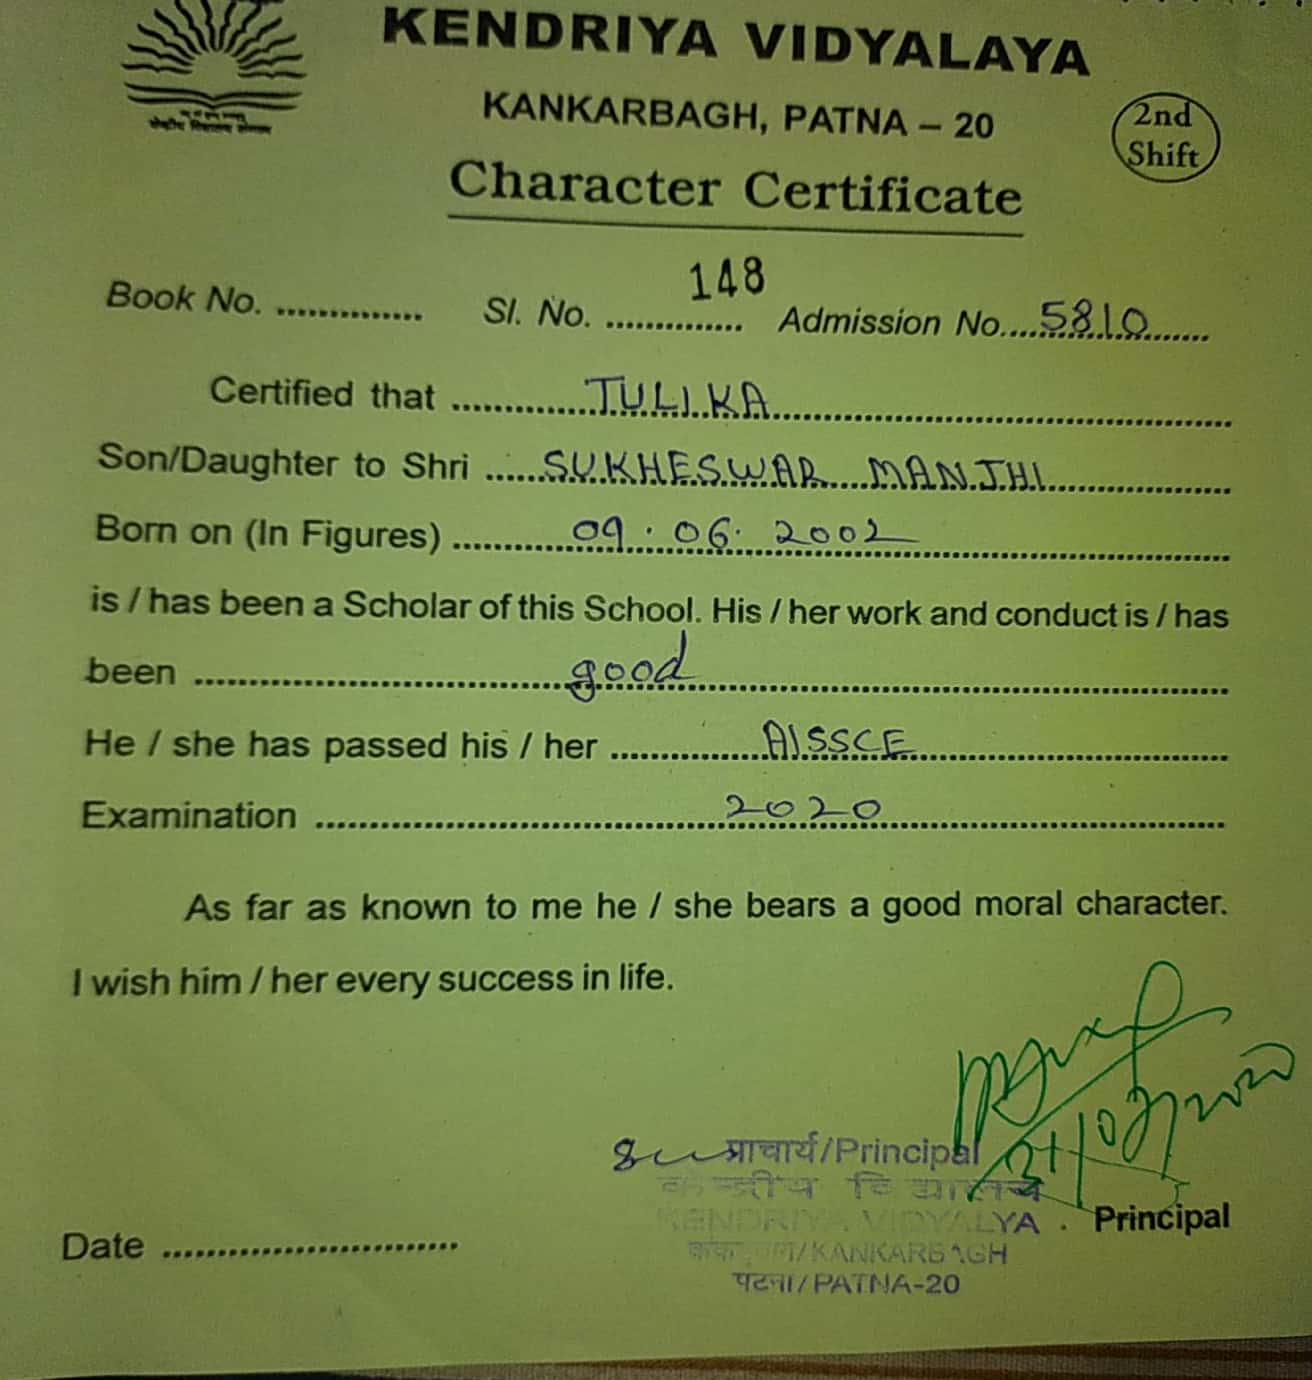 KENDRIYA VIDYALAYA
KANKARBAGH, PATNA – 20
2nd
Shift
Character Certificate
Book No. .............. Sl. No. .............. 148 Admission No....5810.......
Certified that ..............TULIKA..............
Son/Daughter to Shri ......SUKHESWAR....MANJHI..............
Born on (In Figures) ............09.06.2002..............
is / has been a Scholar of this School. His / her work and conduct is / has
been ..............good..............
He / she has passed his / her ..............AISSCE..............
Examination ..............2020..............
As far as known to me he / she bears a good moral character.
I wish him / her every success in life.
प्राचार्य/Principal
केन्द्रीय विद्यालय
KENDRIYA VIDYALYA
Principal
Date ..............
/KANKARBAGH
पटना/PATNA-20